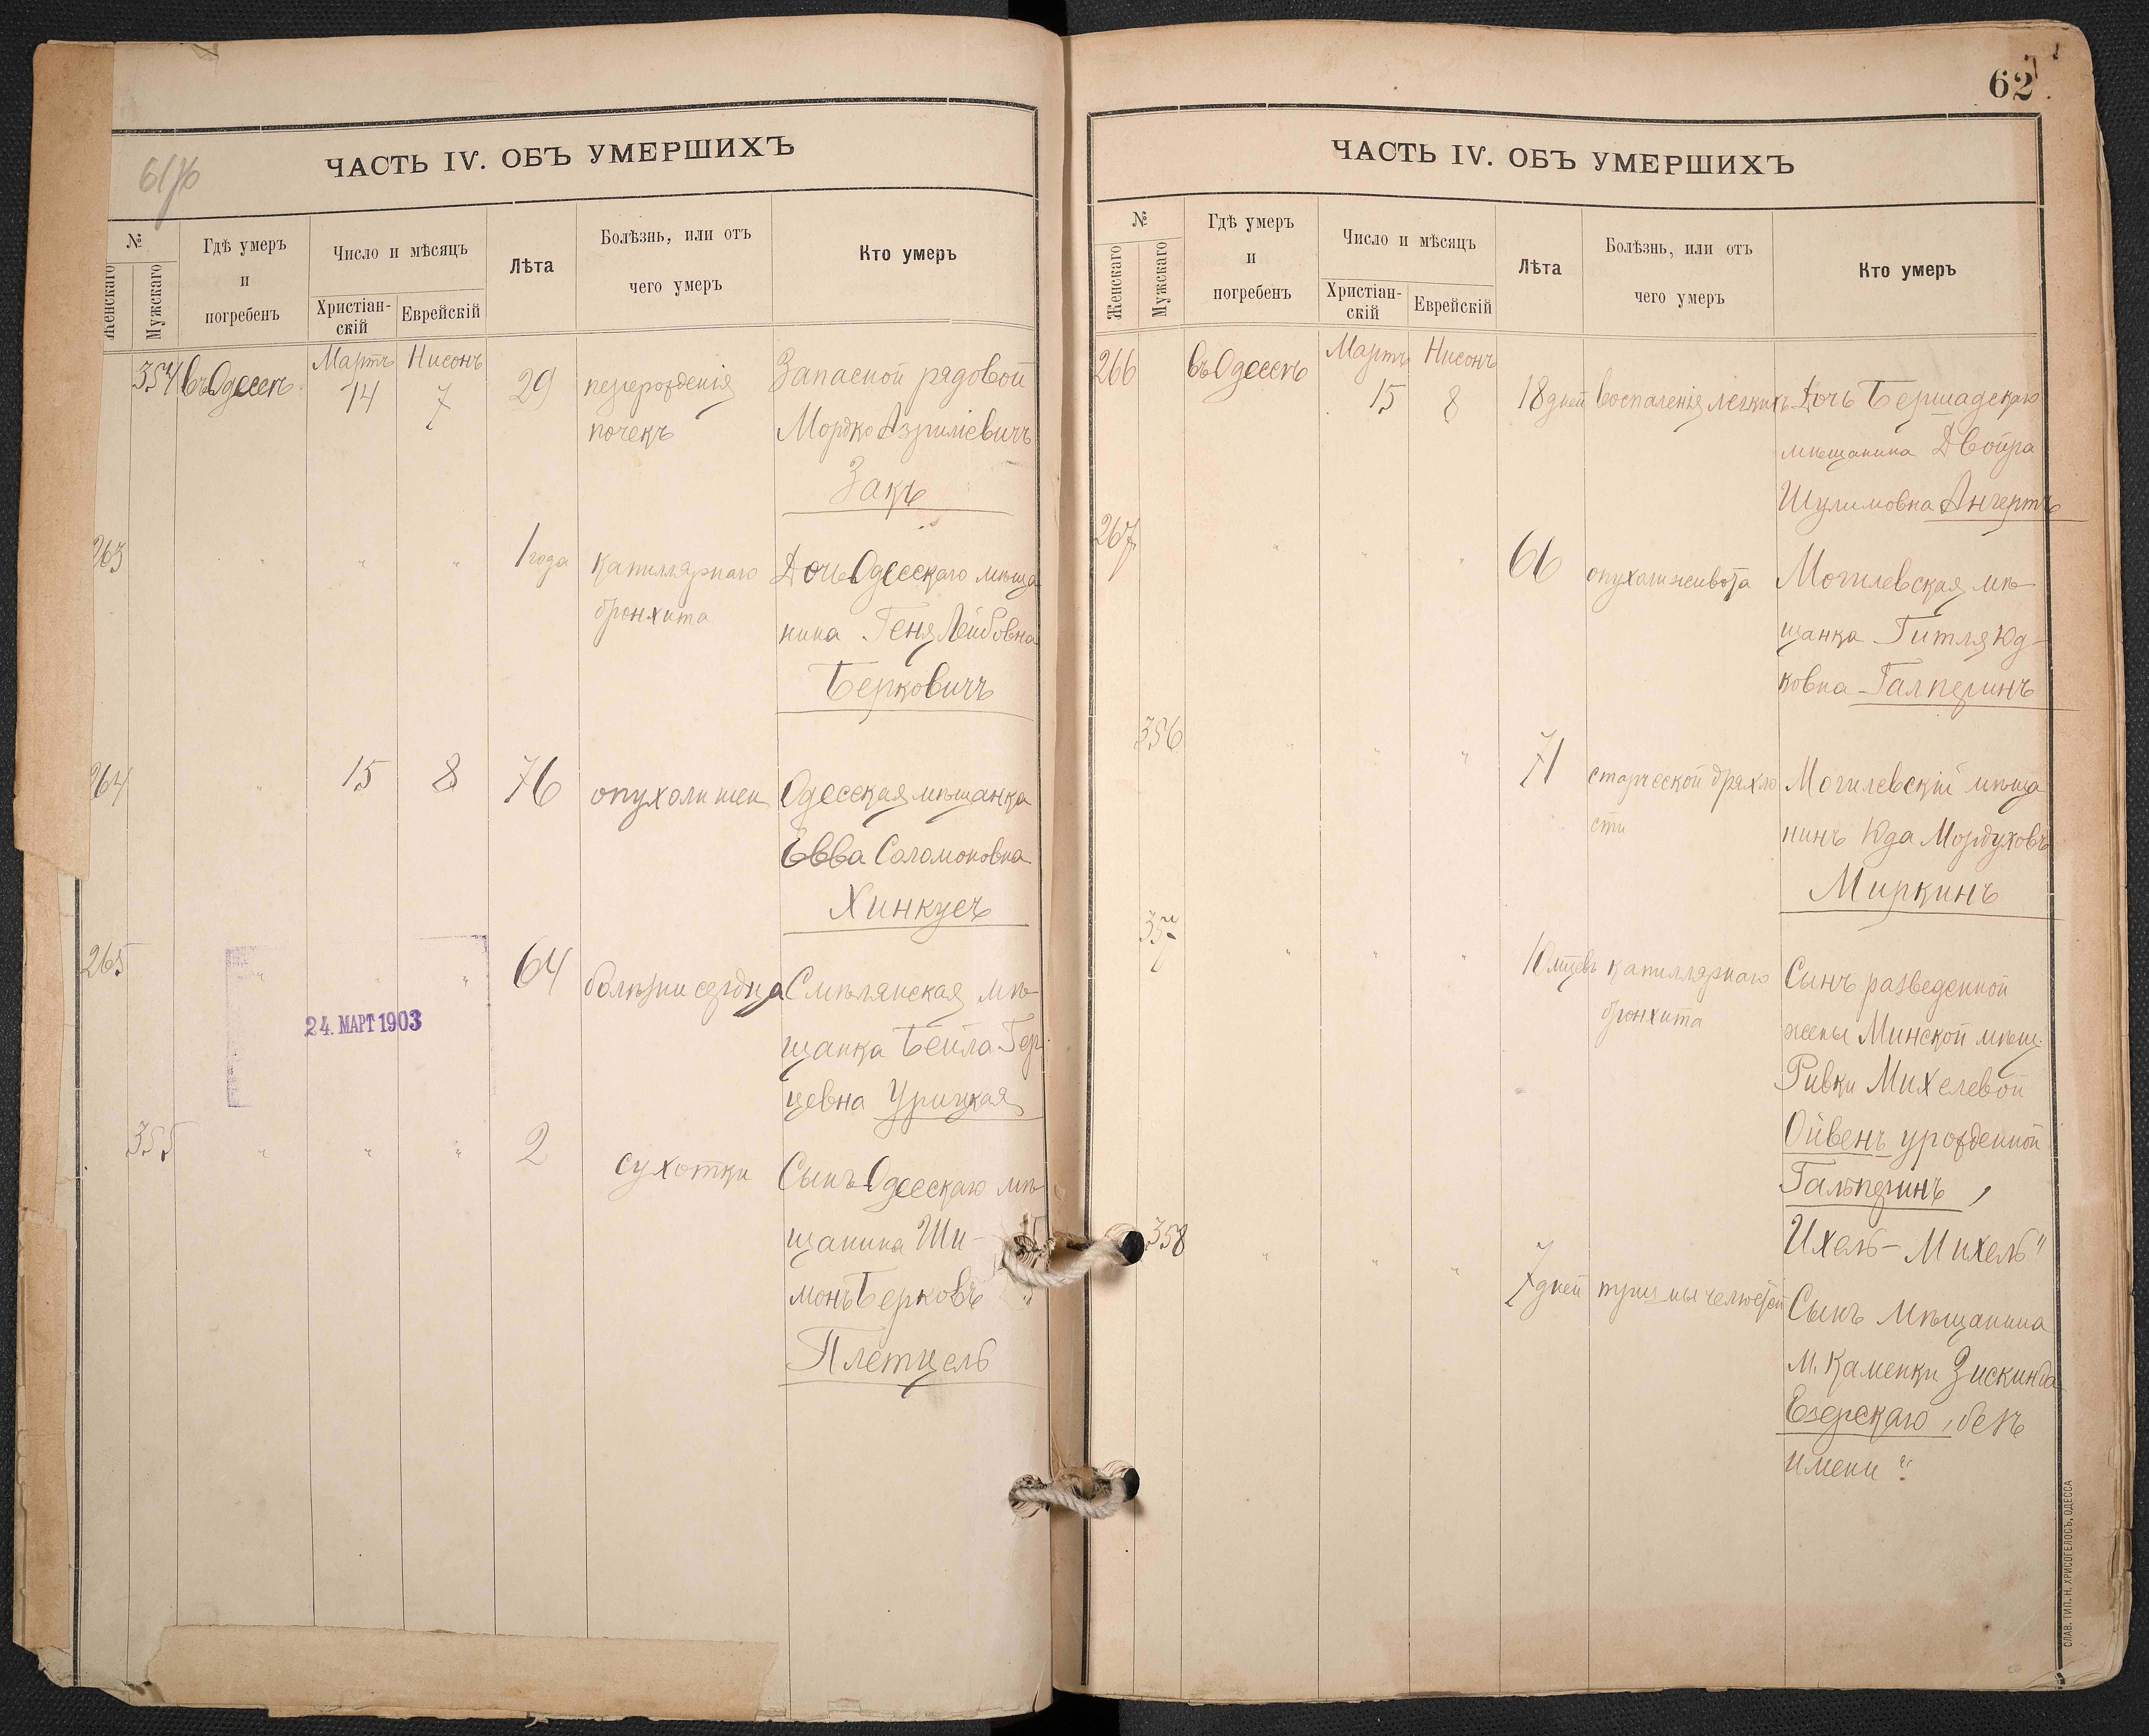 61/76
ЧАСТЬ IV. ОБЪ УМЕРШИХЪ
№
Женскаго
Мужскаго
Гдѣ умеръ
и
погребенъ
Число и мѣсяцъ
Христіан-
скій
Еврейскій
Лѣта
Болѣзнь, или отъ
чего умеръ
Кто умеръ
354 въ Одессѣ Мартъ 14 Нисонъ 7 29 перерожденія Запасной рядовой
почекъ Мордко Азриліевичъ
Закъ
263 " " " 1 года капиллярнаго Дочь Одесскаго мѣща
бронхита нина Геня Лейбовна
Берковичъ
264 " 15 8 76 опухоли шеи Одесская мѣщанка
Евва Соломоновна
Хинкусъ
265 " " " 64 болѣзни сердца Смѣлянская мѣ-
щанка Бейла Гер
цевна Урицкая
24. МАРТ 1903
355 " " " 2 сухотки Сынъ Одесскаго мѣ
щанина Ши-
монъ Берковъ
Плетцель
62
ЧАСТЬ IV. ОБЪ УМЕРШИХЪ
№
Женскаго
Мужскаго
Гдѣ умеръ
и
погребенъ
Число и мѣсяцъ
Христіан-
скій
Еврейскій
Лѣта
Болѣзнь, или отъ
чего умеръ
Кто умеръ
266 въ Одессѣ Мартъ 15 Нисонъ 8 18 дней воспаленія легкихъ Дочь Бершадскаго
мѣщанина Двойра
Шулимовна Ангертъ
267 " " " 66 опухоли живота Могилевская мѣ-
щанка Гитля Юд-
ковна Галперинъ
356 " " " 71 старческой дряхло Могилевскій мѣща
сти нинъ Юда Мордуховъ
Миркинъ
357 " " " 10 мцевъ капиллярнаго Сынъ разведенной
бронхита жены Минской мѣщ.
Ривки Михелевой
Ойвенъ урожденной
Гальперинъ,
Ихель-Михель"
358 " " " 7 дней челюстей Сынъ мѣщанина
м. Каменки Зискинда
Езерскаго, безъ
имени"
СЛАВ. ТИП. Н. ХРИСОГЕЛОСЪ, ОДЕССА